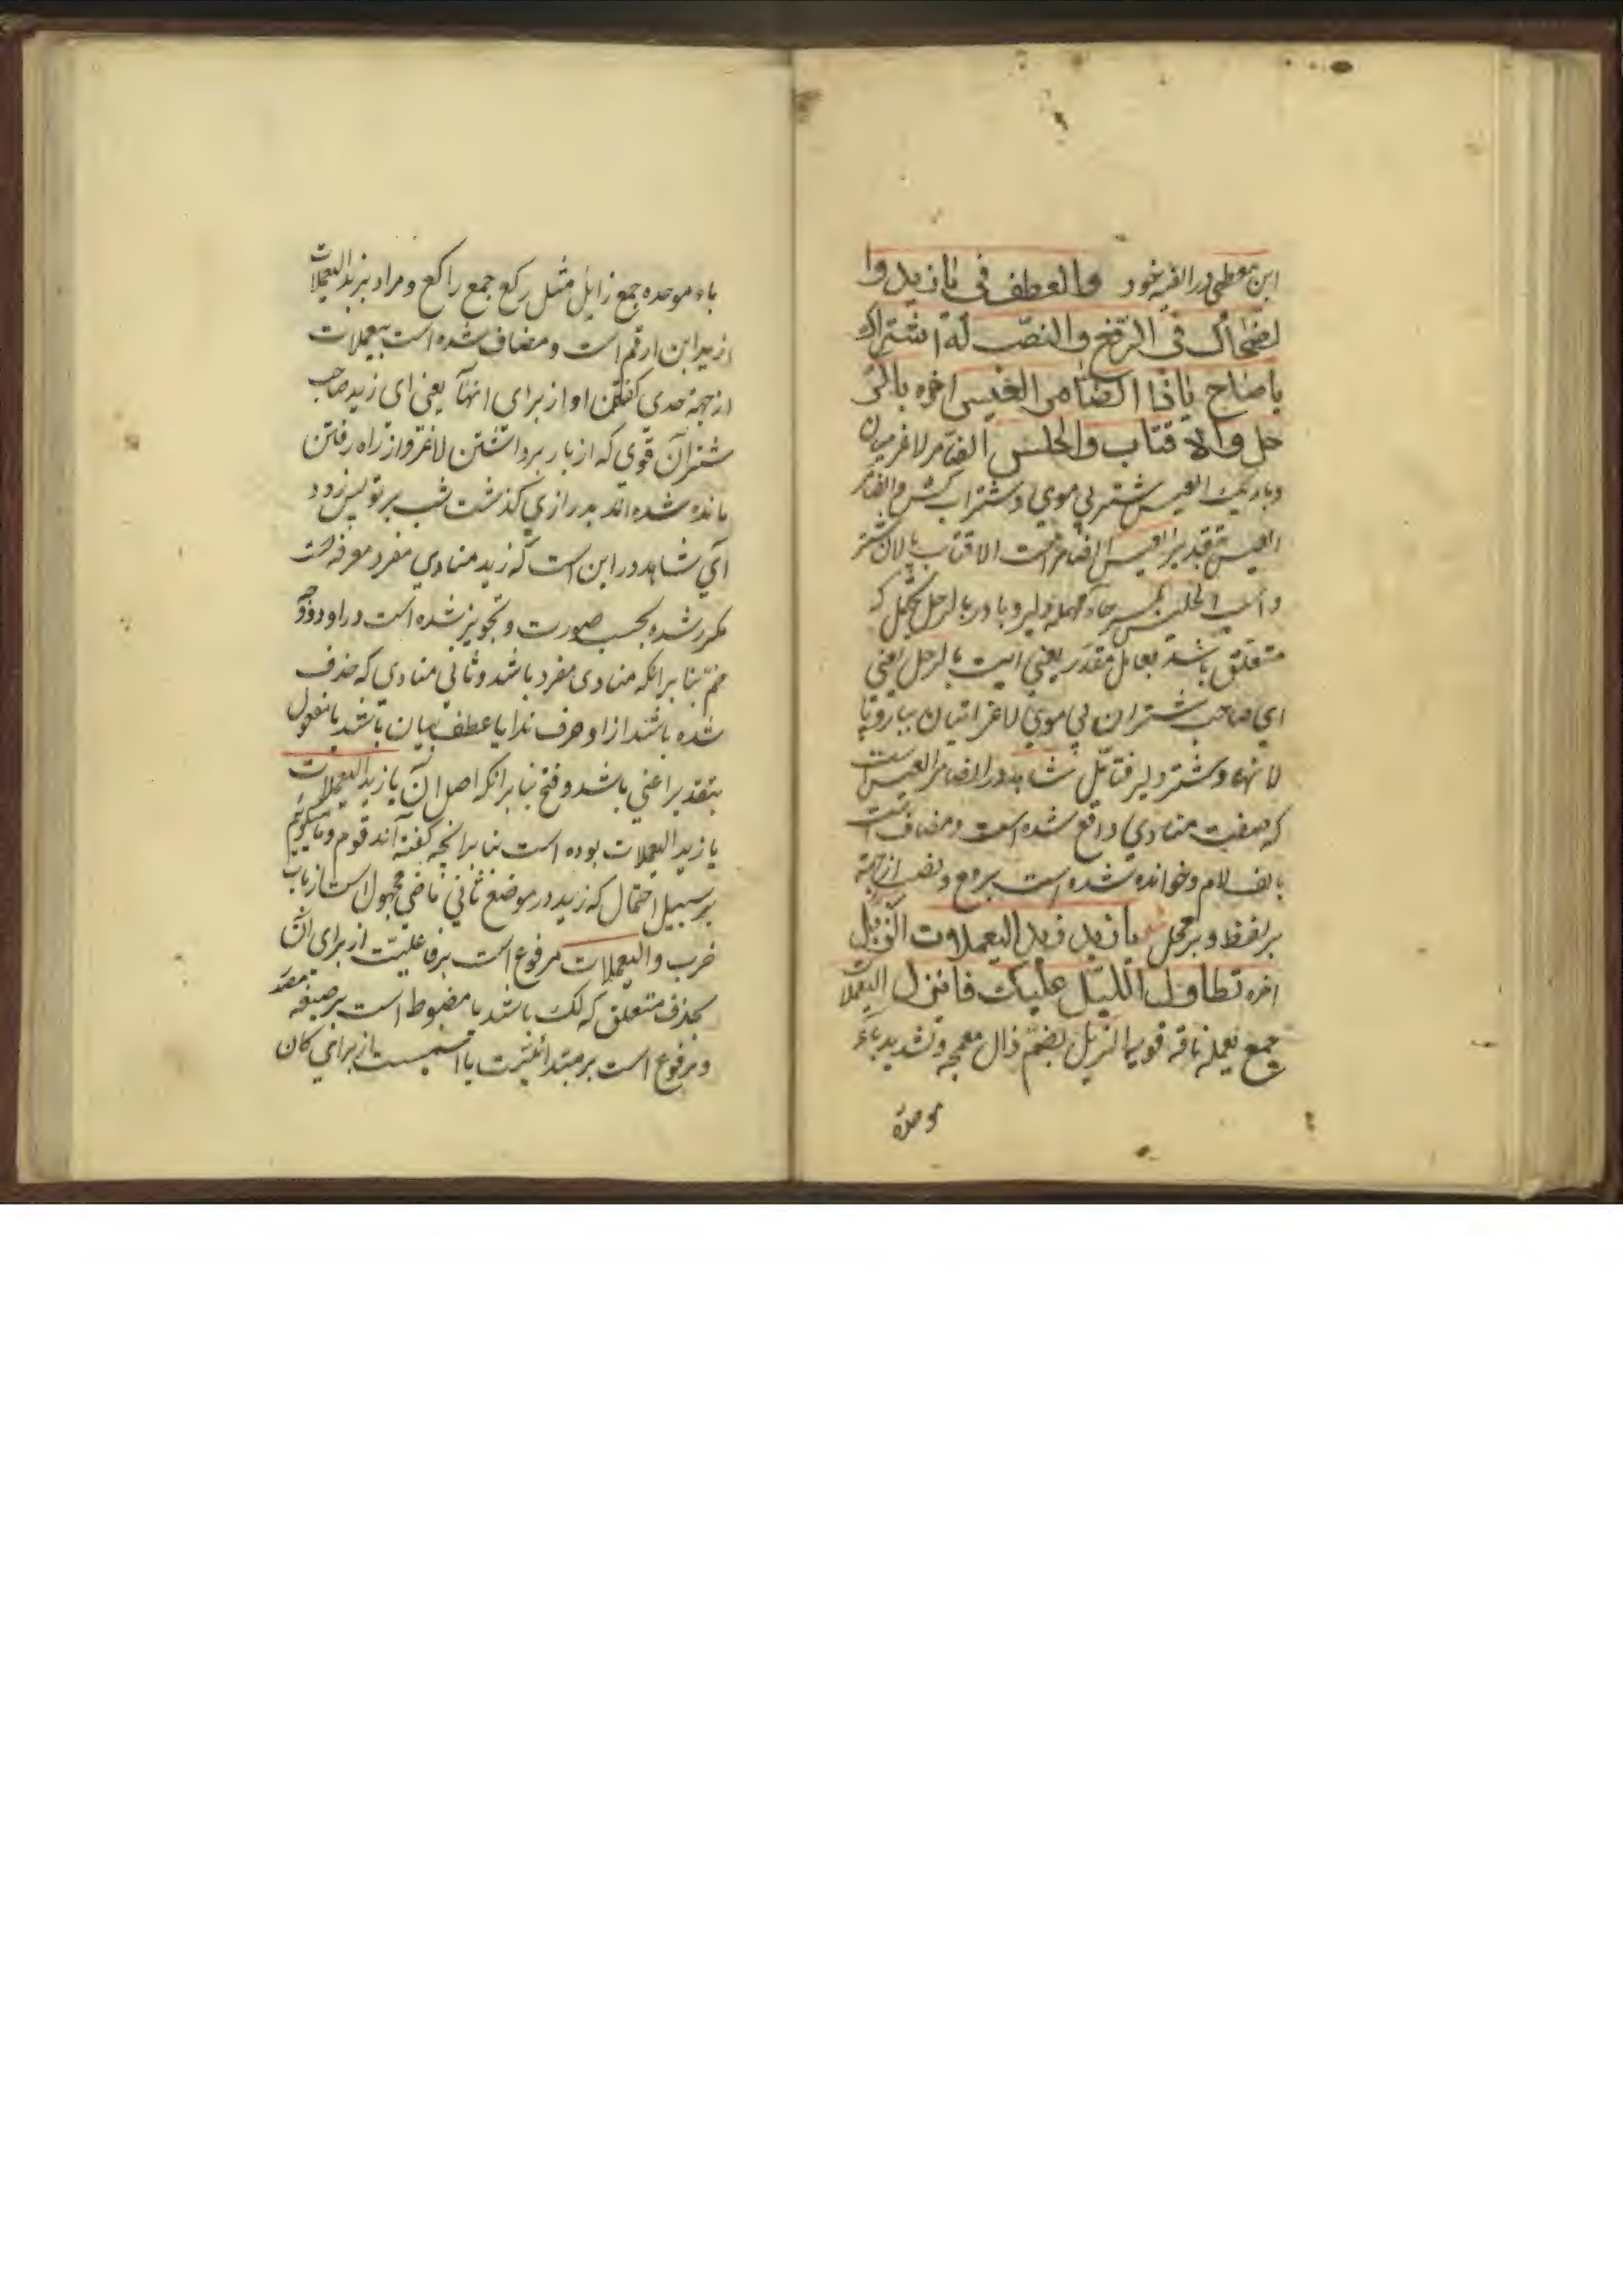 ابن معطی در الفیه خود والعطف فی یا زید وا
لضحاک فی الرفع والنصب له اشتراک
یا صاح یا ذا الضامر العیس اخره بالر
حل والاقتاب والحلس الضامر لاغر میان
و باریک العیس شتر بی موی و شتران
العیس بتقدیر العیس الضامر است الاقتاب پالان شتر
والحلس بکسر حاء مهمله دلیر و با در بالرحل محتمل که
متعلق باشد بعامل مقدر یعنی ائیت بالرحل یعنی
ای صاحب شتران بی موی لاغر میان بیا رو با
لانها و شتر دلیر فتامل شاهد در الضامر العیس است
که صفت منادی واقع شده است و مضاف است
بالف لام و خوانده شده است برفع و نصب از جهة
بر لفظ و بر محل شعر یا زید زید الیعملات الذبل
اخره تطاول اللیل علیک فانزل الیعملات
جمع یعمله ناقه قویه الذبل بضم ذال معجمه و تشدید باء
موحدة
باء موحده جمع زابل مثل رکع جمع راکع و مراد بزید الیعملات
از زید ابن ارقم است و مضاف شده است بیعملات
از جهة حدی گفتن او از برای انها یعنی ای زید صاحب
شتران قوی که از بار برداشتن لاغر و از راه رفتن
مانده شده اند بدرازی گذشت شب بر تو پس زود
آی شاهد در این است که زید منادی مفرد معرفه است
مکرر شده بحسب صورت و تجویز شده است در او دو وجه
ضم بنا برانکه منادی مفرد باشد و ثانی منادی که حذف
شده باشد از او حرف ندا یا عطف بیان باشد یا مفعول
بتقدیر اعنی باشد و فتح بنا برانکه اصل آن یا زید الیعملات
یا زید الیعملات بوده است بنا برانچه گفته اند قوم و ما میگوئیم
بر سبیل احتمال که زید در موضع ثانی ماضی مجهول است از باب
ضرب و الیعملات مرفوع است بر فاعلیت از برای آن
بحذف متعلق که لک باشد یا مضبوط است بر صیغه مصدر
و مرفوع است بر مبتدائیت یا اسمیت از برای کان